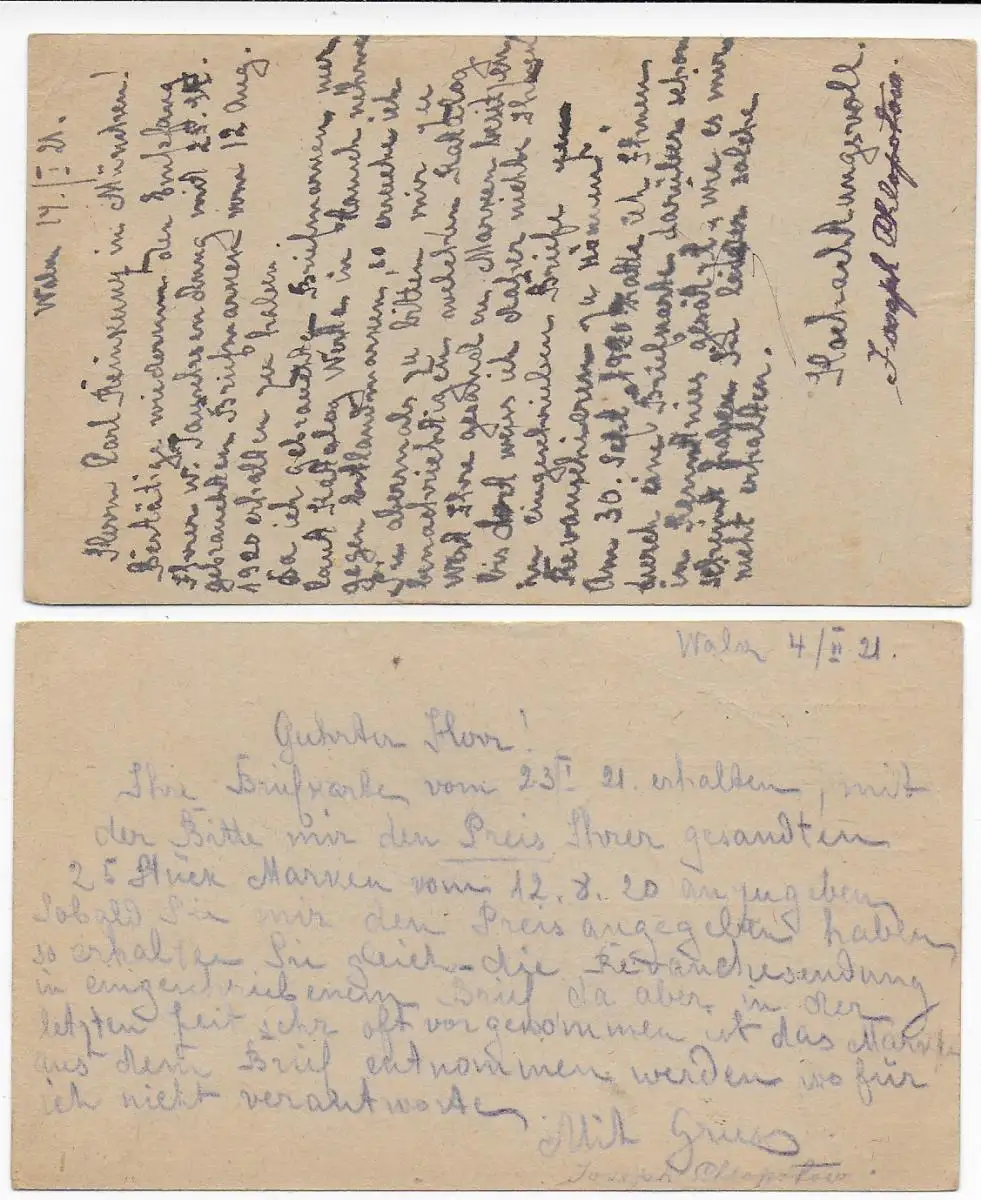 Waln 14./I 21.
Herrn Carl Reinking in München!
Bestätige wiederum den Empfang
Ihrer w. Tauschsendung mit 25 St.
gebrauchten Briefmarken vom 12 Aug.
1920 erhalten zu haben.
Da ich gebrauchte Briefmarken nur
laut Katalog Werte in Tausch nehme
gegen so ersuche ich
Sie abermals zu bitten mir zu
benachrichtigen welchen Katalog
Wert Ihre gesandten Marken besitzen
bis dort weis ich daher nicht Ihnen
in eingeschrieben Briefe
zu können.
Am 30. Sept 1920 hatte ich Ihnen
durch eine Briefkarte darüber schon
in Kenntnis gesetzt, wie es mir
scheint haben Sie leider solche
nicht erhalten.
Hochachtungsvoll.
Joseph Chlopotow.
Waln 4/II 21.
Guhrter Herr!
Ihre Briefkarte vom 23 I 21. erhalten, mit
der Bitte mir den Preis Ihrer gesandten
25 Stück Marken vom 12. 8. 20 anzugeben
Sobald Sie mir den Preis angegeben haben,
so erhalten Sie gleich die Revanchesendung
in eingeschriebenem Brief da aber in der
letzten Zeit sehr oft vorgekommen ist das Marken
aus dem Brief entnommen werden wo für
ich nicht verantworte
Mit Gruss
Joseph Chlopotow.